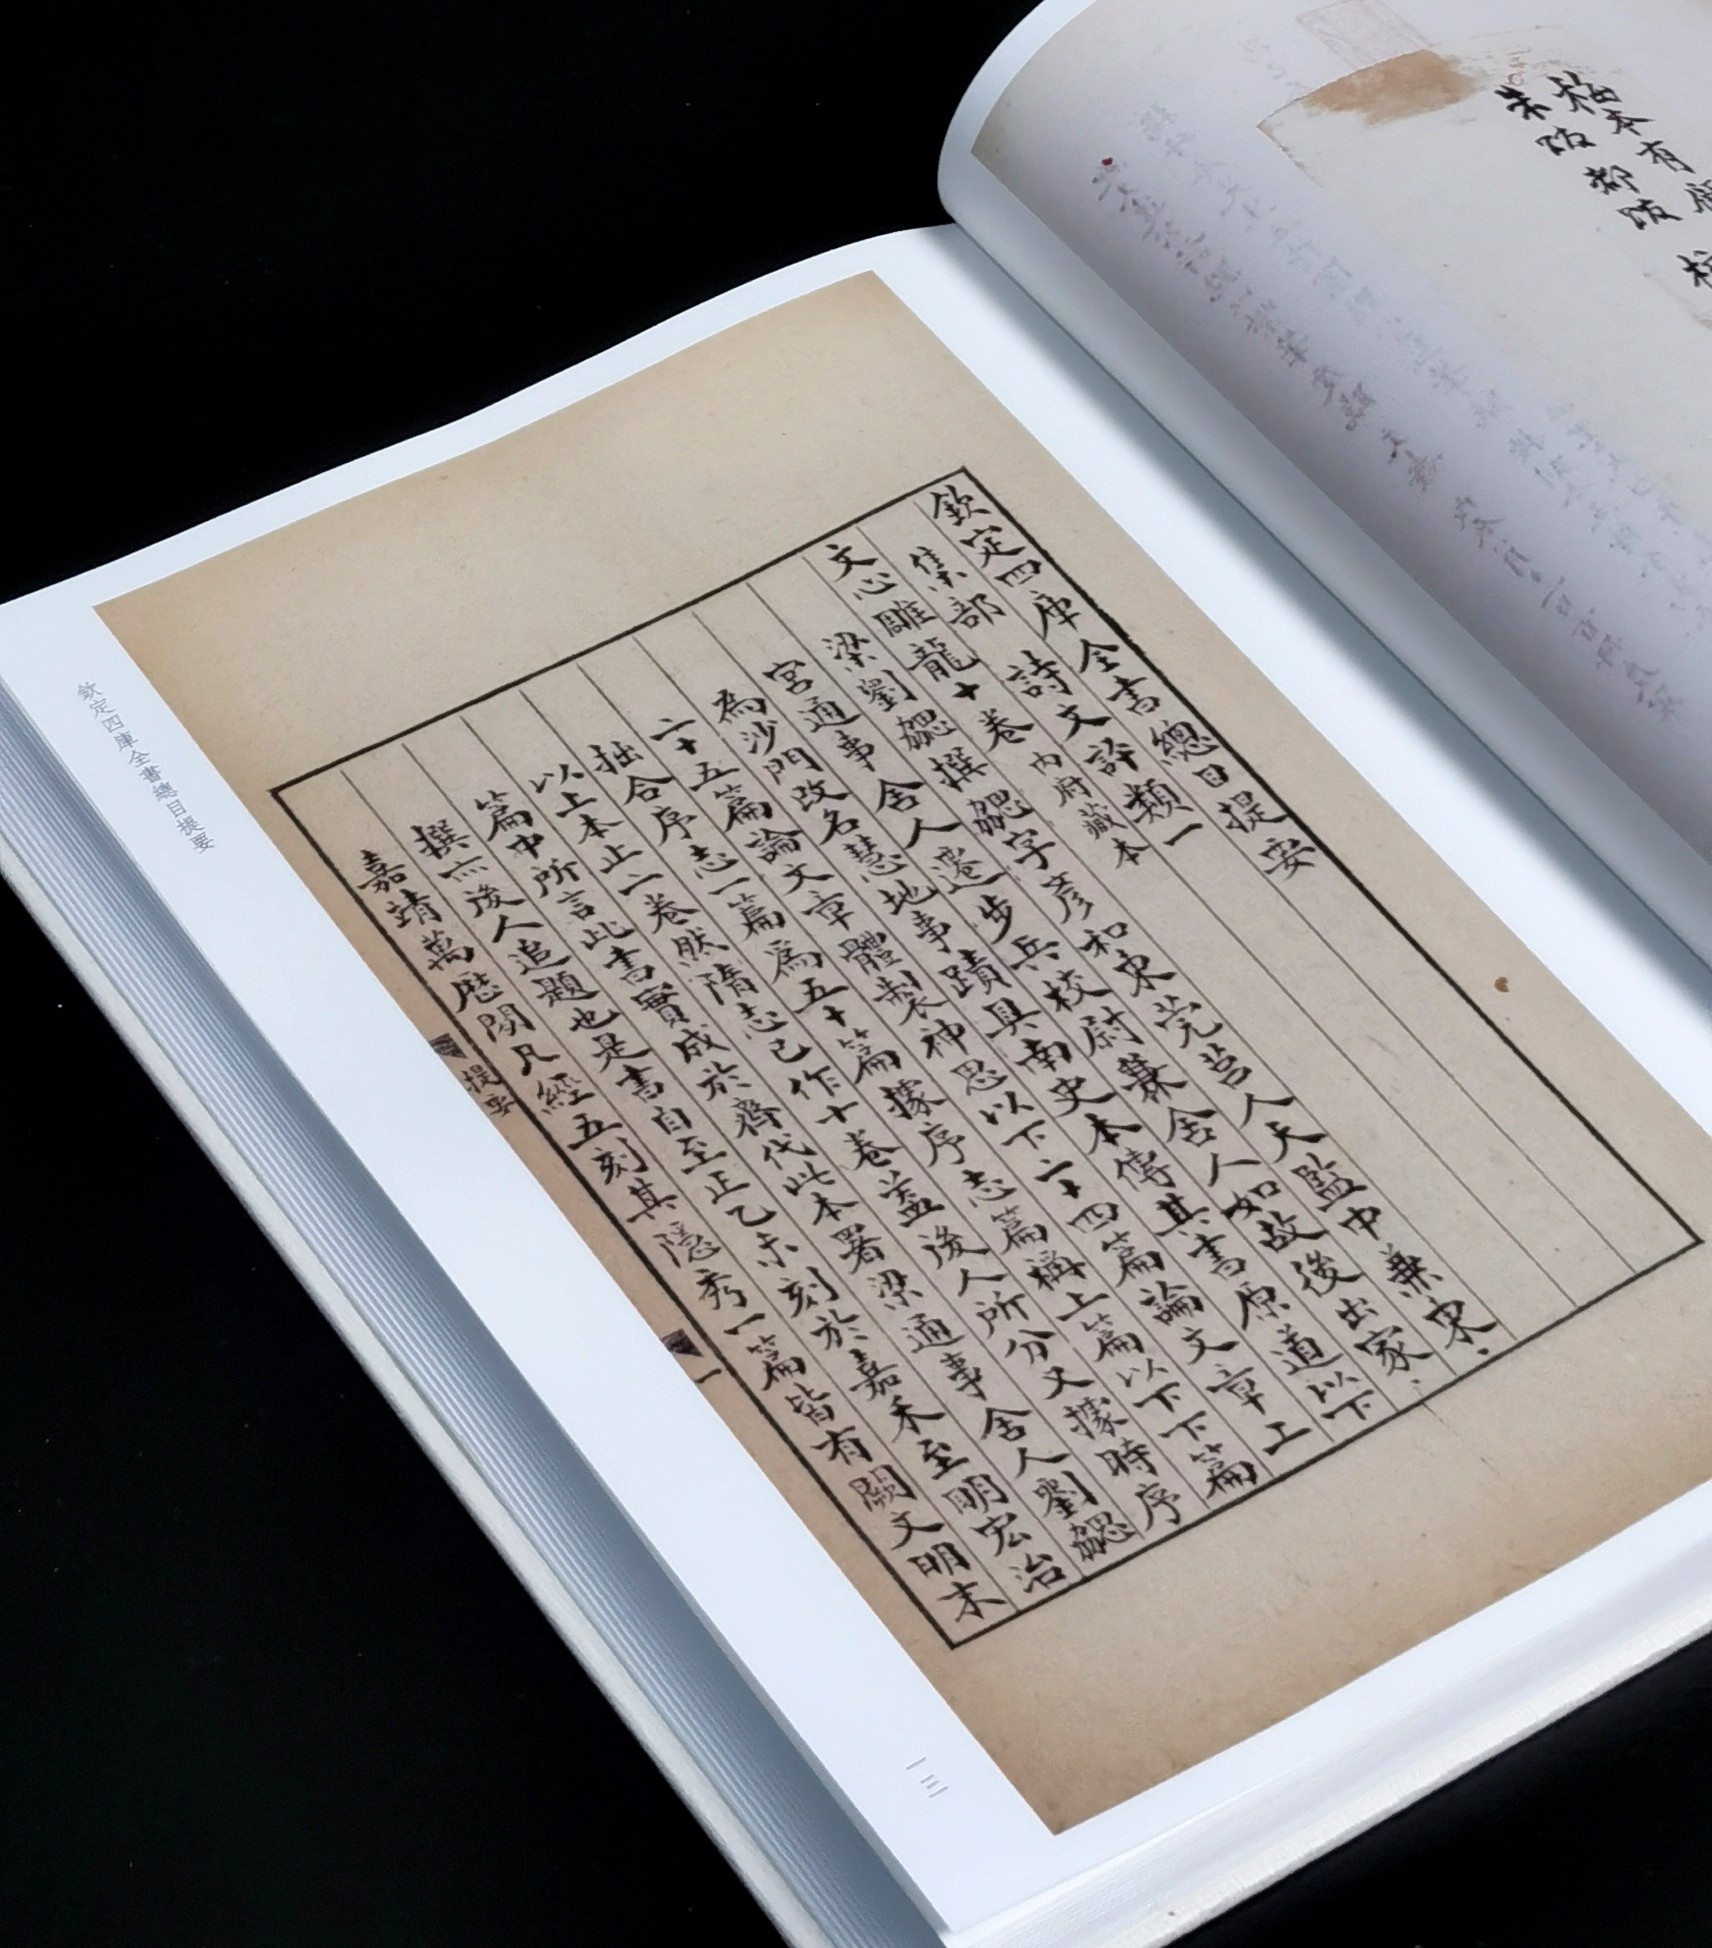 梅本有
朱跋都跋
欽定四庫全書總目提要
集部　詩文評類一
文心雕龍十卷 內府藏本
梁劉勰撰勰字彥和東莞莒人天監中兼東
宮通事舍人遷步兵校尉兼舍人如故後出家
為沙門改名慧地事蹟具南史本傳其書原道以下
二十五篇論文章體製神思以下二十四篇論文章工
拙合序志一篇爲五十篇據序志篇稱上篇以下下篇
以上本止二卷然隋志已作十卷葢後人所分又據時序
篇中所言此書實成於齊代此本署梁通事舍人劉勰
撰亦後人追題也是書自至正乙未刻於嘉禾至明宏治
嘉靖萬歷閒凡經五刻其隱秀一篇皆有闕文明末
提要　一
欽定四庫全書總目提要
一三